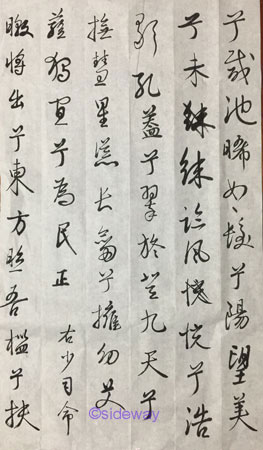 兮咸池晞女髮兮陽望美
兮未徠臨風怳兮浩
歌孔蓋兮翠旍登九天兮
撫彗星竦長劍兮擁幼艾
蓀獨宜兮為民正 右少司命
暾將出兮東方照吾檻兮扶
©sideway